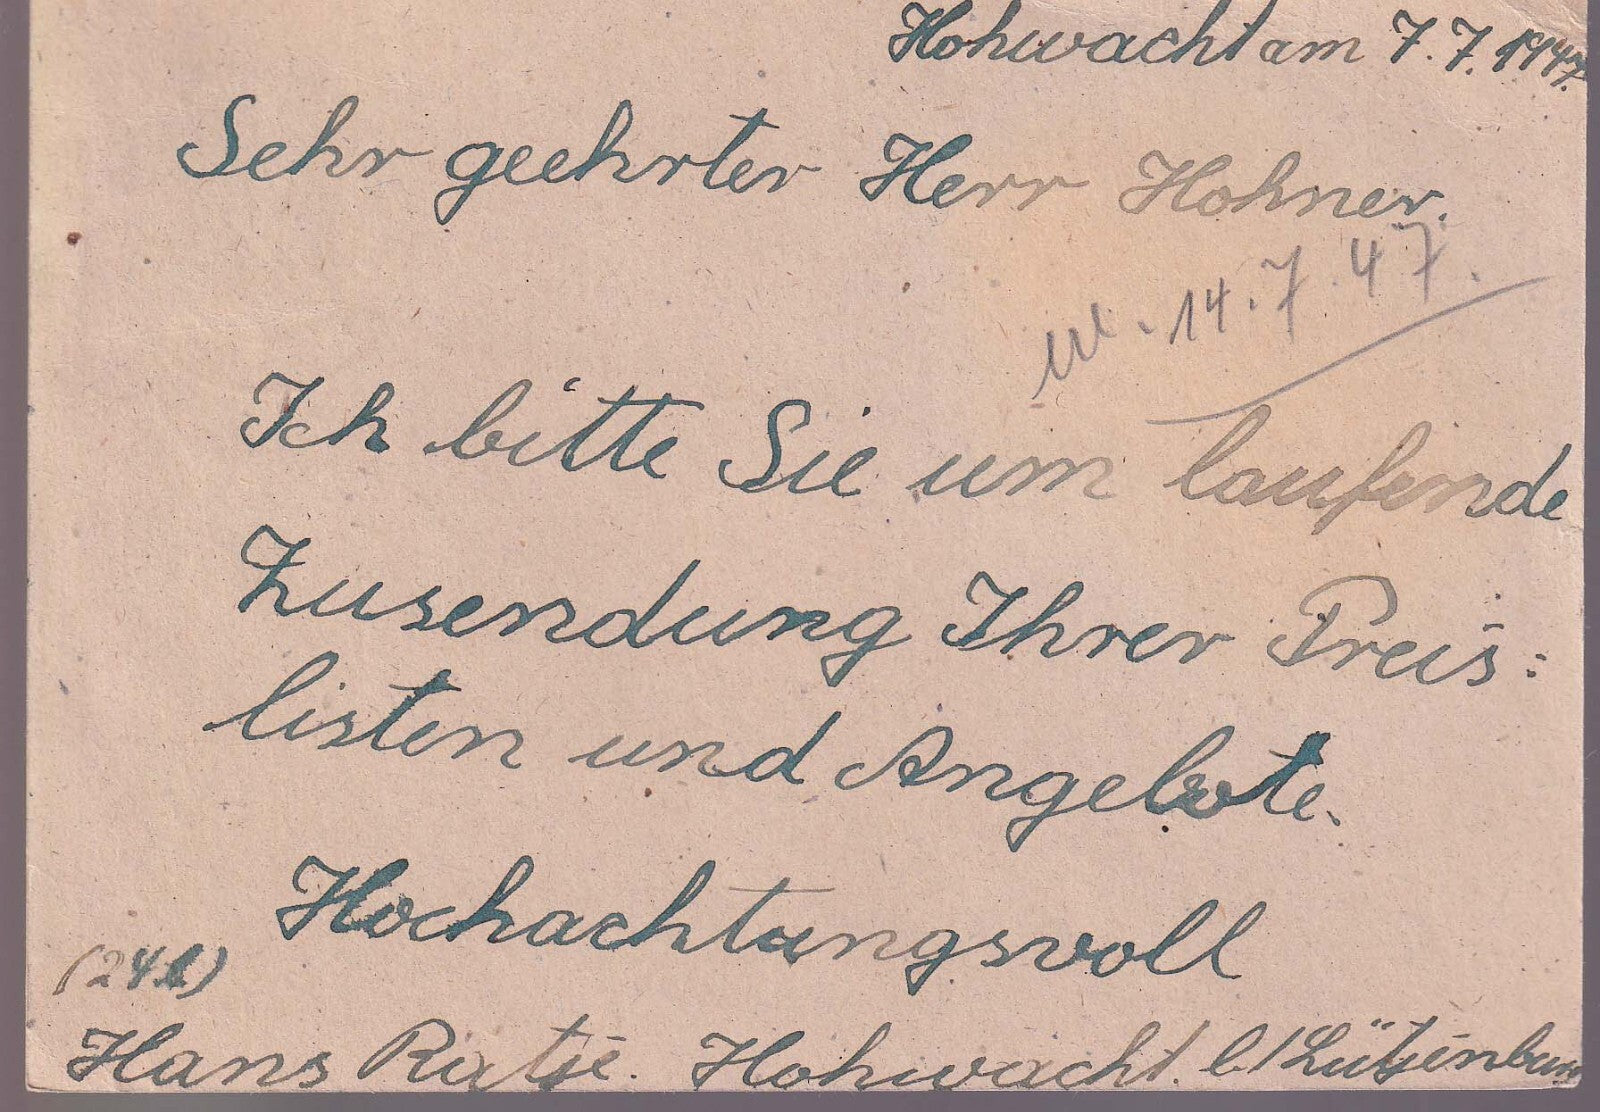 Hohwacht am 7.7.1947.
Sehr geehrter Herr Hohner.
14.7.47.
Ich bitte Sie um laufende
Zusendung Ihrer Preis:
listen und Angebote.
Hochachtungsvoll
(24b)
Hans Ratje. Hohwacht. b/Lütjenburg